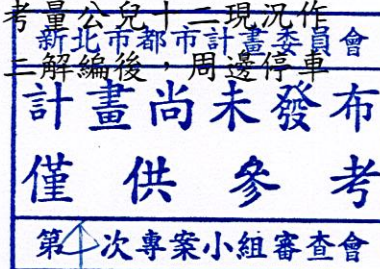 考量公兒十二現況作
新北市都市計畫委員會
二解編後，周邊停車
計畫尚未發布
僅供參考
第次專案小組審查會